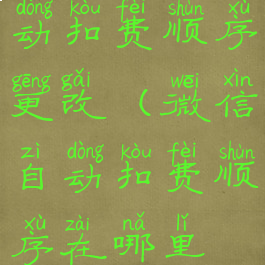 dòng kòu fèi shùn xù
动扣费顺序
gēng gǎi wēi xìn
更改（微信
zì dòng kòu fèi shùn
自动扣费顺
xù zài nǎ lǐ
序在哪里